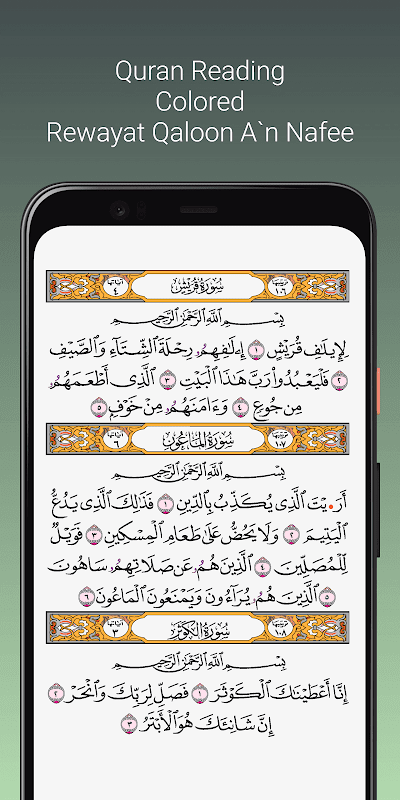 Quran Reading
Colored
Rewayat Qaloon A`n Nafee
ترتيبها ١٠٦ سُورَةُ قُرَيْشٍ آياتها ٤
بِسْمِ اللَّهِ الرَّحْمَٰنِ الرَّحِيمِ
لِإِيلَٰفِ قُرَيْشٍ ١ إِۦلَٰفِهِمُۥ رِحْلَةَ اَلشِّتَآءِ وَالصَّيْفِ
٢ فَلْيَعْبُدُواْ رَبَّ هَٰذَا اَلْبَيْتِ ٣ اَلَّذِى أَطْعَمَهُمُۥ
مِن جُوعٍ ٤ وَءَامَنَهُمُۥ مِنْ خَوْفٍ ٥
ترتيبها ١٠٧ سُورَةُ الْمَاعُونِ آياتها ٦
بِسْمِ اللَّهِ الرَّحْمَٰنِ الرَّحِيمِ
أَرَٰيْتَ اَلَّذِى يُكَذِّبُ بِالدِّينِ ١ فَذَٰلِكَ اَلَّذِى يَدُعُّ
اُلْيَتِيمَ ٢ وَلَا يَحُضُّ عَلَىٰ طَعَامِ اِلْمِسْكِينِ ٣ فَوَيْلٌ
لِّلْمُصَلِّينَ ٤ اَلَّذِينَ هُمُۥ عَن صَلَاتِهِمُۥ سَاهُونَ
٥ اَلَّذِينَ هُمُۥ يُرَآءُونَ وَيَمْنَعُونَ اَلْمَاعُونَ ٦
ترتيبها ١٠٨ سُورَةُ الْكَوْثَرِ آياتها ٣
بِسْمِ اللَّهِ الرَّحْمَٰنِ الرَّحِيمِ
إِنَّا أَعْطَيْنَٰكَ اَلْكَوْثَرَ ١ فَصَلِّ لِرَبِّكَ وَانْحَرْ ٢
إِنَّ شَانِئَكَ هُوَ اَلْأَبْتَرُ ٣